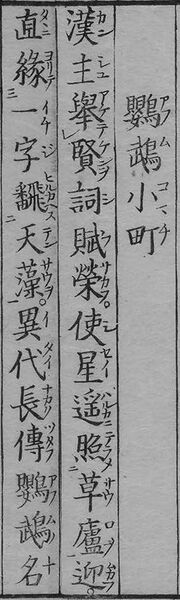 鸚鵡小町
漢主舉賢詞賦榮。使星遥照草廬迎。
直緣一字飜天藻。異代長傳鸚鵡名